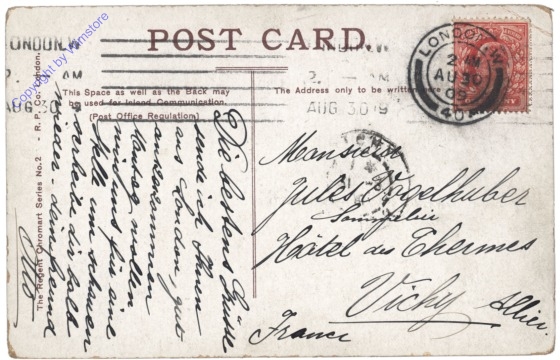 POST CARD.
This Space as well as the Back may
be used for Inland Communication.
(Post Office Regulation)
The Address only to be written here
LONDON.W
2 AM
AUG 30
LONDON.W
2 AM
AU 30
09
40
Die besten Grüsse
sende ich Ihnen
aus London, gut
angekommen
für eine
Stelle um schauen
schreibe dir bald
wieder. dein Freund
Otto
Monsieur
Jules Vogelhuber
Sommelier
Hôtel des Thermes
Vichy Allier
France
The Regent Chromart Series No. 2 - R. P. Co. London.
copyright by wmstore